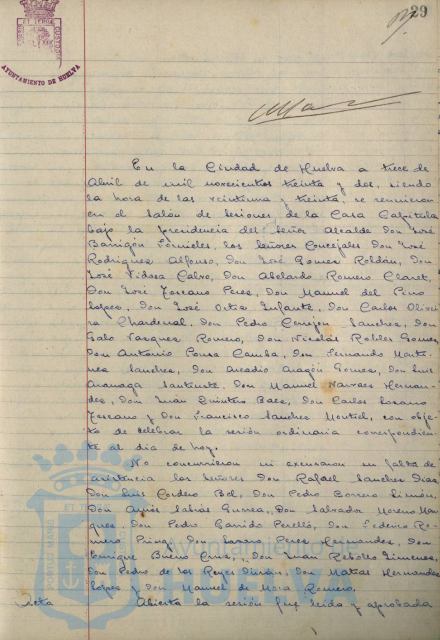 29
AYUNTAMIENTO DE HUELVA
En la Ciudad de Huelva a trece de
Abril de mil novecientos treinta y dos, siendo
la hora de las veintiuna y treinta, se reunieron
en el Salón de Sesiones de la Casa Capitular
bajo la presidencia del Señor Alcalde Don José
Barrigón Fornieles, los Señores Concejales Don José
Rodríguez Alfonso, Don José Gomez Roldán, Don
José Vidosa Calvo, Don Abelardo Romero Claret,
Don José Toscano Perez, Don Manuel del Pino
Lopez, Don José Ortiz Infante, Don Carlos Olivei
ra Chardenal, Don Pedro Cerrejón Sanchez, Don
Galo Vazquez Romero, Don Nicolás Robles Gomez,
Don Antonio Ponce Camba, Don Fernando Marti-
nez Sanchez, Don Arcadio Aragón Gomez, Don Luis
Don Manuel Narvaez Hernan-
dez, Don Juan Quintero Baez, Don Carlos Lozano
Toscano y Don Francisco Sanchez Montiel, con obje-
to de celebrar la sesión ordinaria correspondien
te al dia de hoy.
No concurrieron ni excusaron su falta de
asistencia los Señores Don Rafael Sanchez Diaz
Don Luis Cordero Bel, Don Pedro Borrero Limón,
Don Amós Sabrás Gurrea, Don Salvador Moreno Mar
quez, Don Pedro Garrido Perelló, Don Federico Ro-
mero Don Perez Hernandez, Don
Enrique Bueno Cruz, Don Juan Rebollo Jimenez,
Don Pedro de los Reyes Don Matias Hernandez
Lopez y Don Manuel de Mora Romero.
Acta Abierta la sesión fué leida y aprobada
AYUNTAMIENTO DE
HUELVA